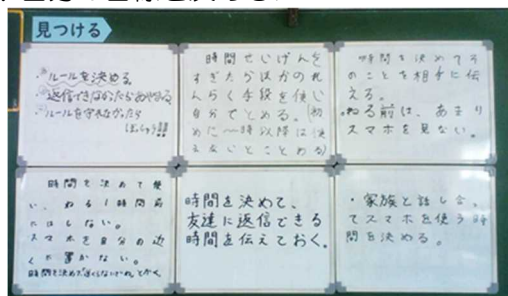 見つける
・ルールを決める
・返信できなかったらあやまる
・ルールを守れなかったら
ばっしゅう!!!
時間せいげんを
すぎたらほかのれ
んらく手段を使い
自分でとめる。(初
めに〜時以降は使
えないとことわる)
時間を決めてそ
のことを相手に伝
える。
ねる前は、あまり
スマホを見ない。
時間を決めて使
い、ねる1時間前
にはしない。
スマホを自分の近
くに置かない。
時間を決めて
時間を決めて、
友達に返信できる
時間を伝えておく。
・家族と話し合っ
てスマホを使う時
間を決める。